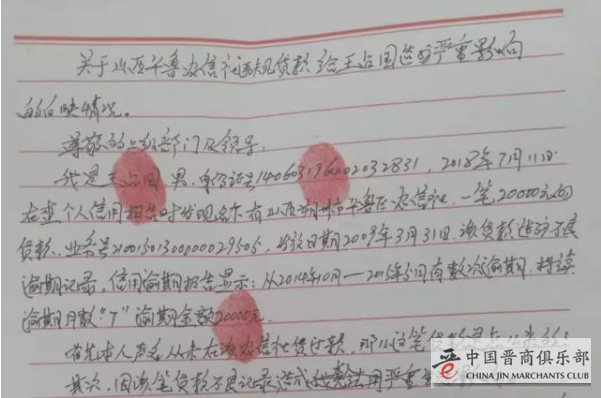 关于山西平鲁农信社违规贷款给王占国造成严重影响
的反映情况。
尊敬的上级部门及领导:
我是王占国 男,身份证号140603196202032831,2018年7月11日
在查个人信用报告时发现名下有山西朔州市平鲁区农信社一笔,20000元的
贷款,业务号 发放日期2009年3月31日,该贷款造成不良
逾期记录,信用逾期报告显示:从2014年10月—2015年5月有数次逾期,持续
逾期月数"7"逾期金额20000元。
首先本人声名从未在该农信社贷过款,那么这笔贷款是
其次,因该笔贷款不良记录造成我无法用 严重
晋 中国晋商俱乐部
CHINA JIN MARCHANTS CLUB